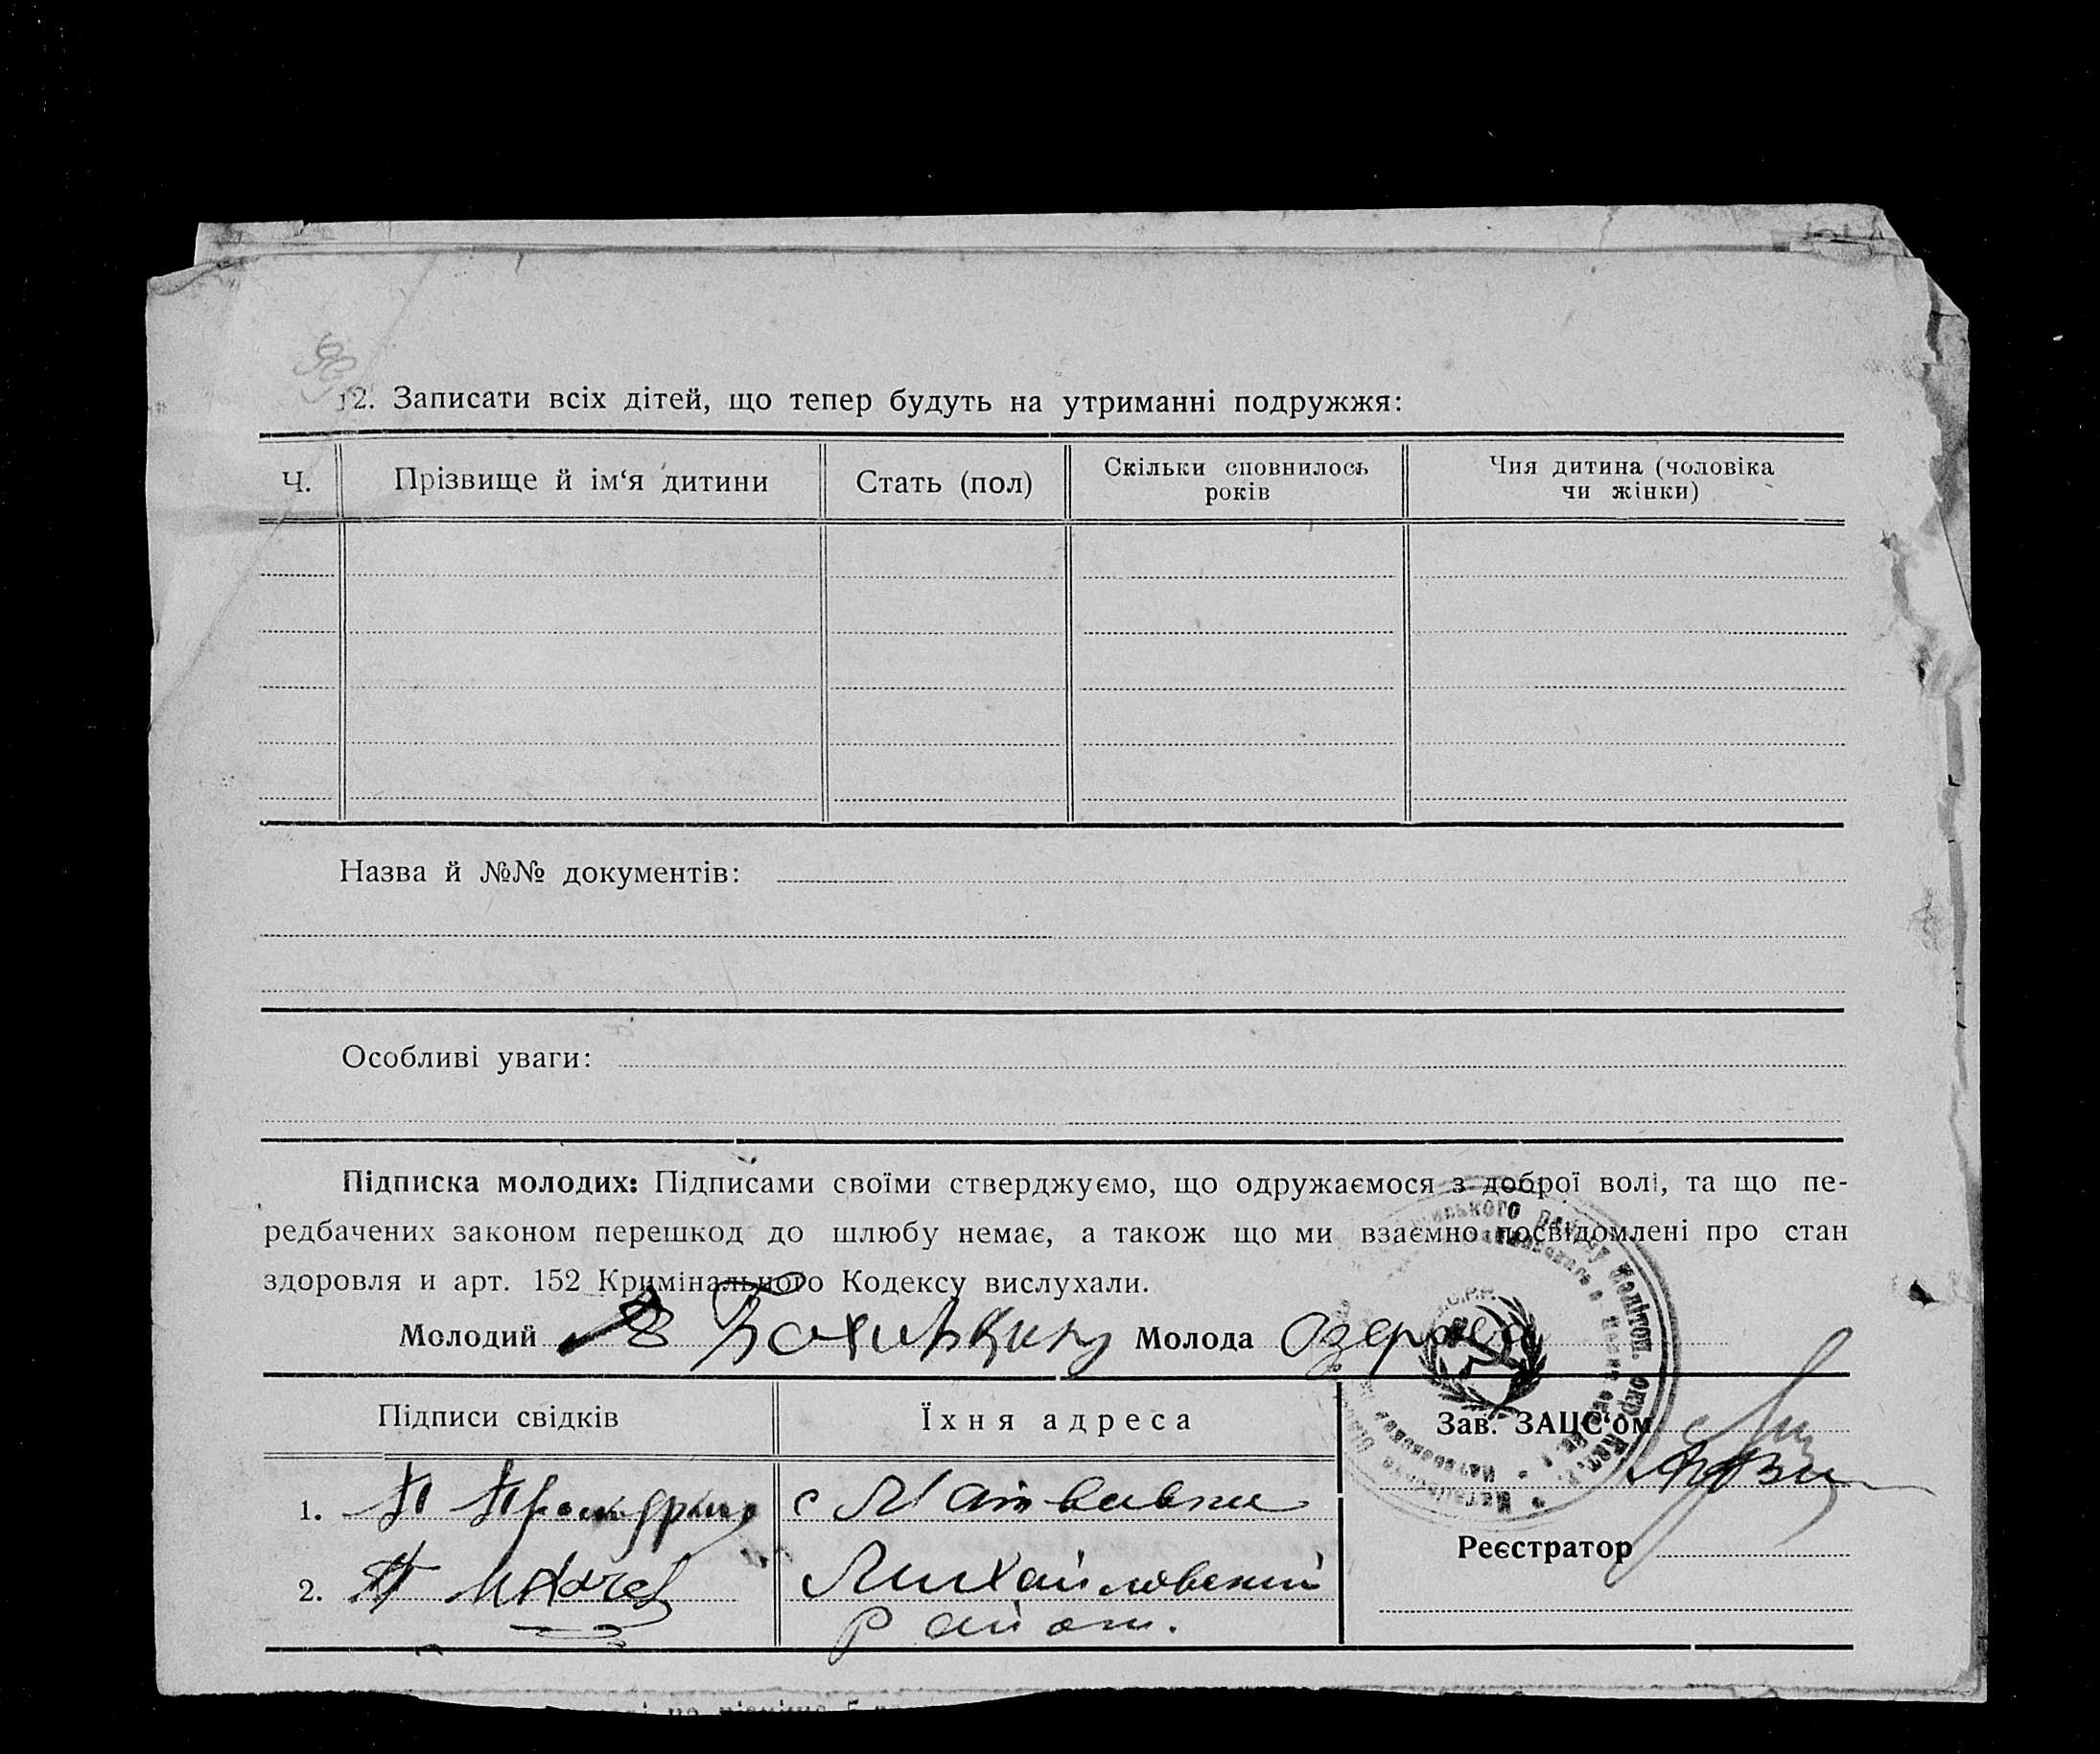 12. Записати всіх дітей, що тепер будуть на утриманні подружжя:
Ч. Прізвище й ім‘я дитини Стать (пол) Скільки сповнилось років Чия дитина (чоловіка чи жінки)
Назва й №№ документів:
Особливі уваги:
Підписка молодих: Підписами своїми стверджуємо, що одружаємося з доброї волі, та що пе-
редбачених законом перешкод до шлюбу немає, а також що ми взаємно посвідомлені про стан
здоровля и арт. 152 Кримінального Кодексу вислухали.
Молодий Молода
Підписи свідків Їхня адреса Зав. ЗАЦС‘ом
1. с Матвивки
Реєстратор
2. Михайловский
район.